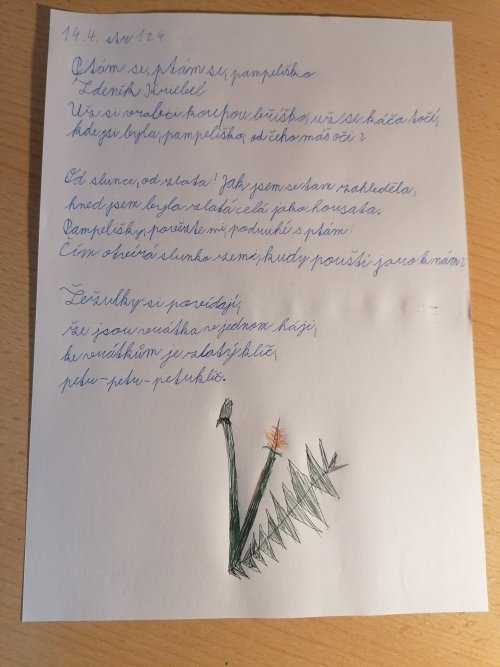 14.4. str 129
Ptám se, ptám se, pampeliško
Zdeněk Kriebel
Už si vrabci koupou bříško, už se káča točí,
kde jsi byla, pampeliško, od čeho máš oči?
Od slunce, od zlata! Jak jsem se tam zahleděla,
hned jsem byla zlatá celá jako housata.
Pampelišky, povězte mi, podruhé s ptám:
Čím otvírá slunko zemi, kudy pouští jaro k nám?
Žežulky si povídají,
že jsou vrátka v jednom háji,
ke vrátkům je zlatý klíč,
petr-petr-petrklíč.